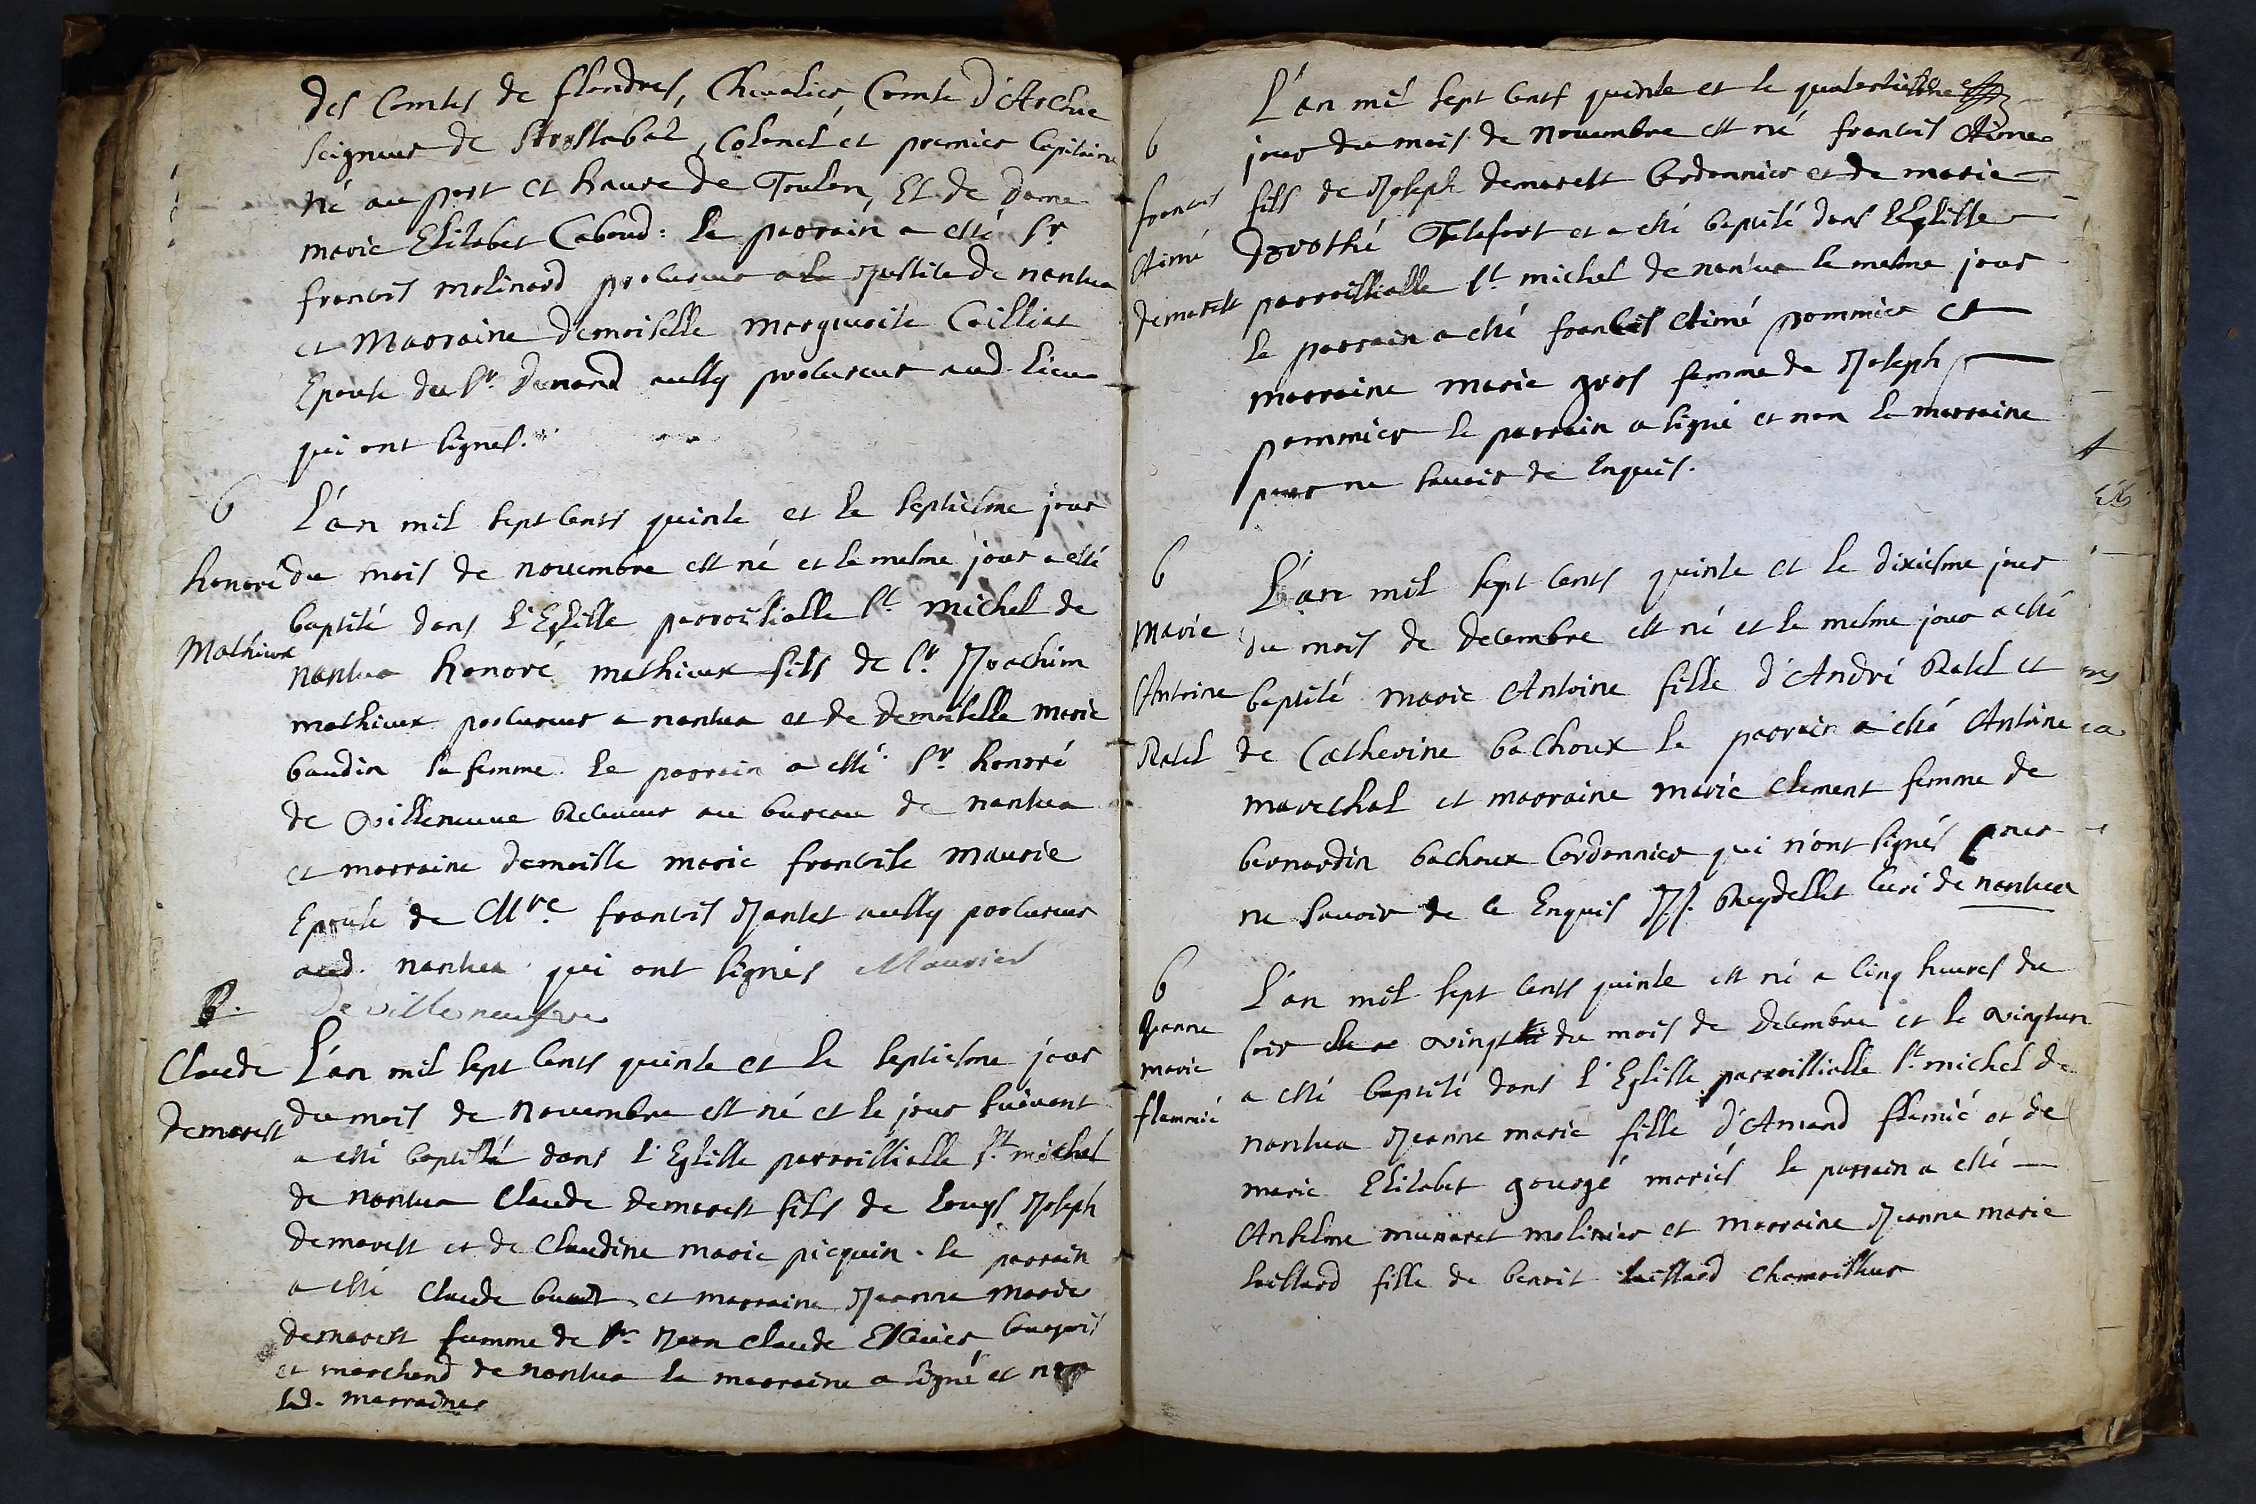 des Comtes de flandres, Chevalier, Comte d'Archie
seigneur de Strostabat, Colonel et premier Capitaine
né au port et havre de Toulon, Et de dame
marie Elisabet Caboud: le parrain a esté Sr
francois molinard procureur a la Justice de nantua
et Marraine demoiselle marguerite Cailliat
Epouse du Sr. Dunand aussy procureur aud. lieu
qui ont signes.
B
honoré
Mathieux
L'an mil sept cents quinse et le septiesme jour
du mois de novembre est né et le mesme jour a esté
baptisé dans l'Eglisse parroissialle St michel de
nantua honoré mathieux fils de Sr. Joachim
mathieux procureur a nantua et de demoiselle marie
baudin sa femme. le parrain a esté Sr honoré
de villeneuve Receveur au bureau de nantua
et marraine demoiselle marie francoise maurie
Epouse de Mre francois Jantet aussy procureur
aud. nantua qui ont signés Maurier
De villeneufve
B.
Claude
demarest
L'an mil sept cents quinse et le septiesme jour
du mois de novembre est né et le jour suivant
a esté baptisé dans l'Eglisse parroissialle St. michel
de nantua Claude demarest fils de Louys Joseph
demarest et de Claudine marie picquin. le parrain
a esté Claude et marraine Jeanne marie
demarest femme de Sr. Jean claude bourgois
et marchand de nantua le marraine a signé et non
lad. marraines
B
francois
Aimé
demarest
L'an mil sept cents quinse et le quatorsiesme
jour du mois de novembre est né francois Aimé
fils de Joseph demarest Cordonnier et de marie
dorothé Telefort et a esté baptisé dans l'Eglisse
parroissialle St michel de nantua le mesme jour
le parrain a esté francois Aimé pommier et
marraine marie gros femme de Joseph
pommier le parrain a signé et non la marraine
pour ne savoir de Enquis.
B
Marie
Antoine
Ratel
L'an mil sept cents quinse et le dixiesme jour
du mois de decembre est né et le mesme jour a esté
baptisé marie Antoine fille d'André Ratel et
de Catherine bachoux le parrain a esté Antoine
marechal et marraine marie Clement femme de
bernardin bachoux Cordonnier qui n'ont signés pour
ne savoir de ce Enquis Js. Reydellet Curé de nantua
B
Jeanne
marie
flammié
L'an mil sept cents quinse est né a cinq heures du
soir vingt du mois de decembre et le vingtun
a esté baptisé dans l'Eglisse parroissialle St michel de
nantua Jeanne marie fille d'Amand flamié et de
marie Elisabet gourgé mariés le parrain a esté
Anselme munaret molinier et marraine Jeanne marie
saillard fille de benoit saillard Chamoisseur